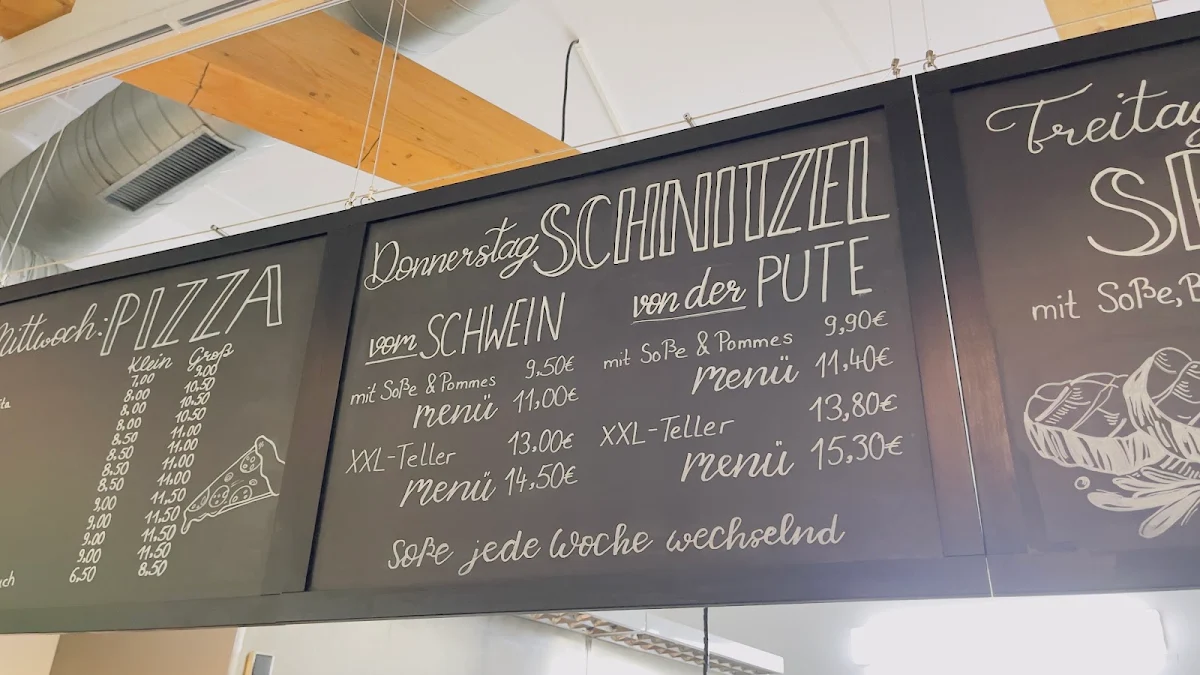 Mittwoch: PIZZA
Klein Groß
7,00 9.00
8,00 10.50
8,00 10.50
8,00 10.50
8.50 11.00
8.50 11.00
8.50 11.00
8.50 11.00
9,00 11.50
9.00 11.50
9.00 11.50
9.00 11.50
6,50 8.50
Donnerstag SCHNITZEL
vom SCHWEIN
mit Soße & Pommes 9,50€
menü 11,00€
XXL-Teller 13.00€
menü 14,50€
von der PUTE
mit Soße & Pommes 9,90€
menü 11,40€
XXL-Teller 13,80€
menü 15,30€
Soße jede Woche wechselnd
Freitag
mit Soße,